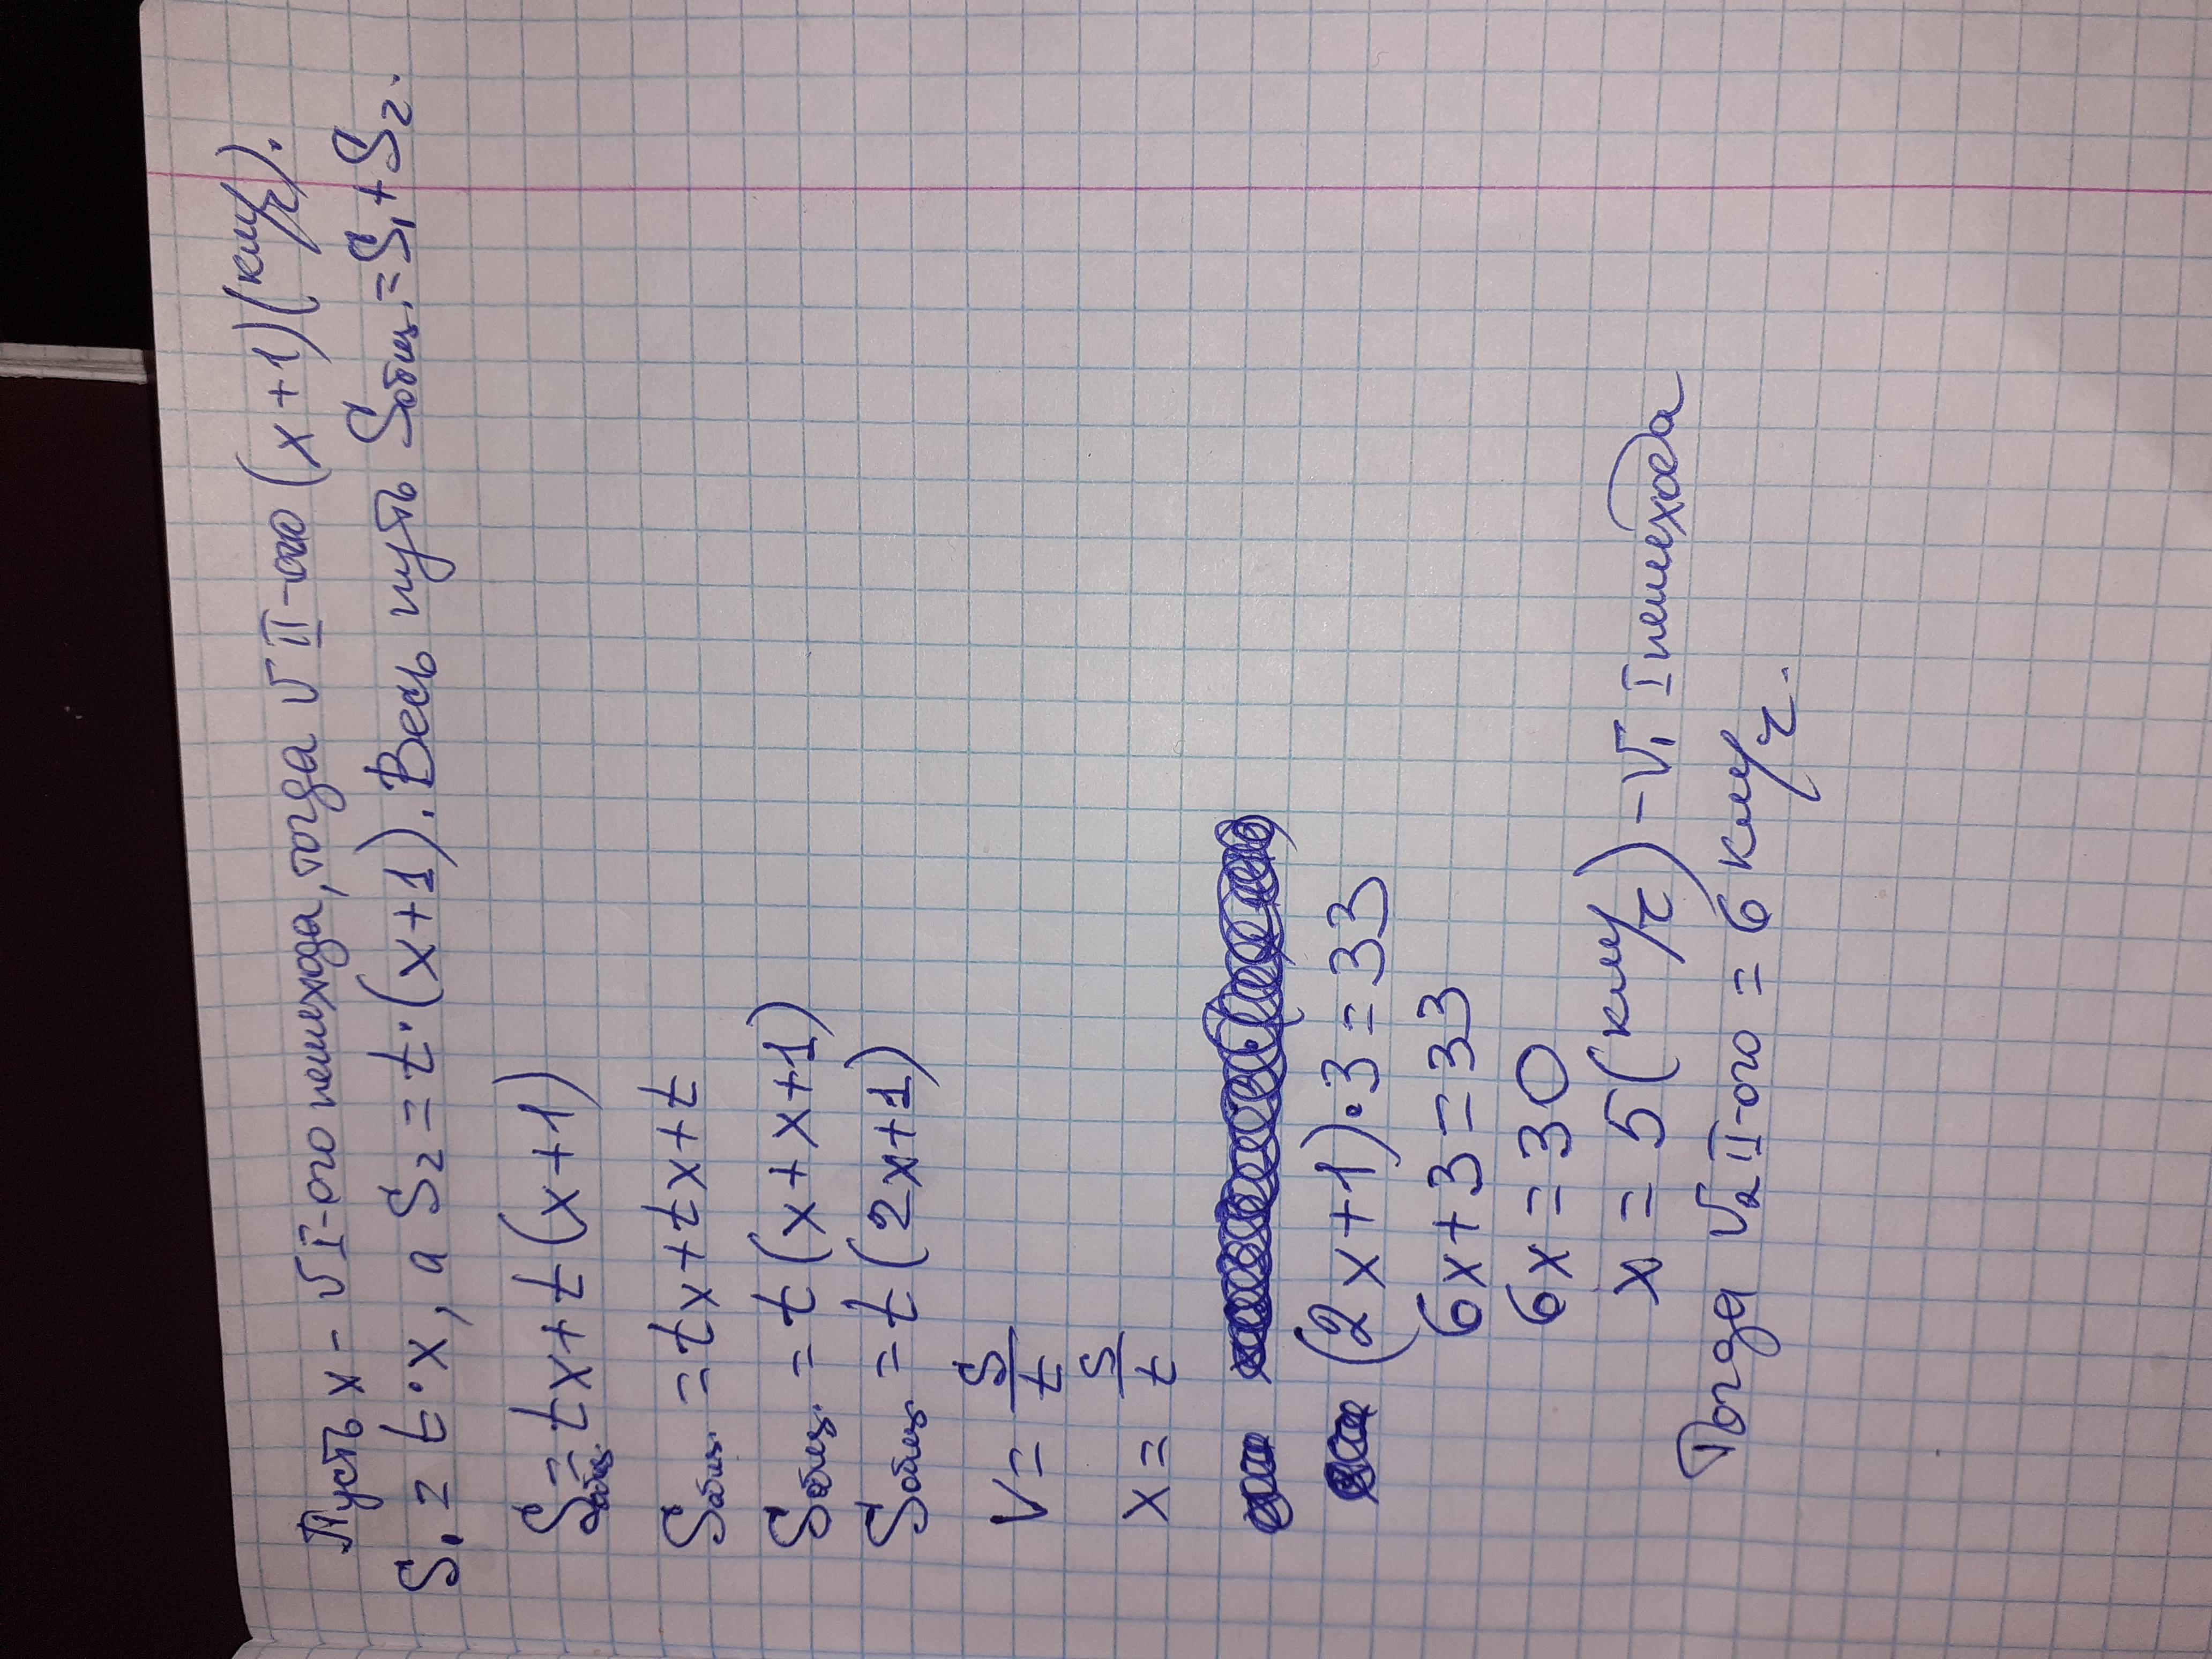 Пусть x - V I-ого пешехода, тогда V II-ого (x+1)(км/ч).
S₁ = t·x, а S₂ = t·(x+1). Весь путь Sобщ. = S₁+S₂.
Sобщ. = tx+t(x+1)
Sобщ. = tx+tx+t
Sобщ. = t(x+x+1)
Sобщ. = t(2x+1)
V = S/t
x = S/t
(2x+1)·3=33
6x+3=33
6x=30
x=5(км/ч) - V₁ I пешехода
Тогда V₂ II-ого = 6 км/ч.